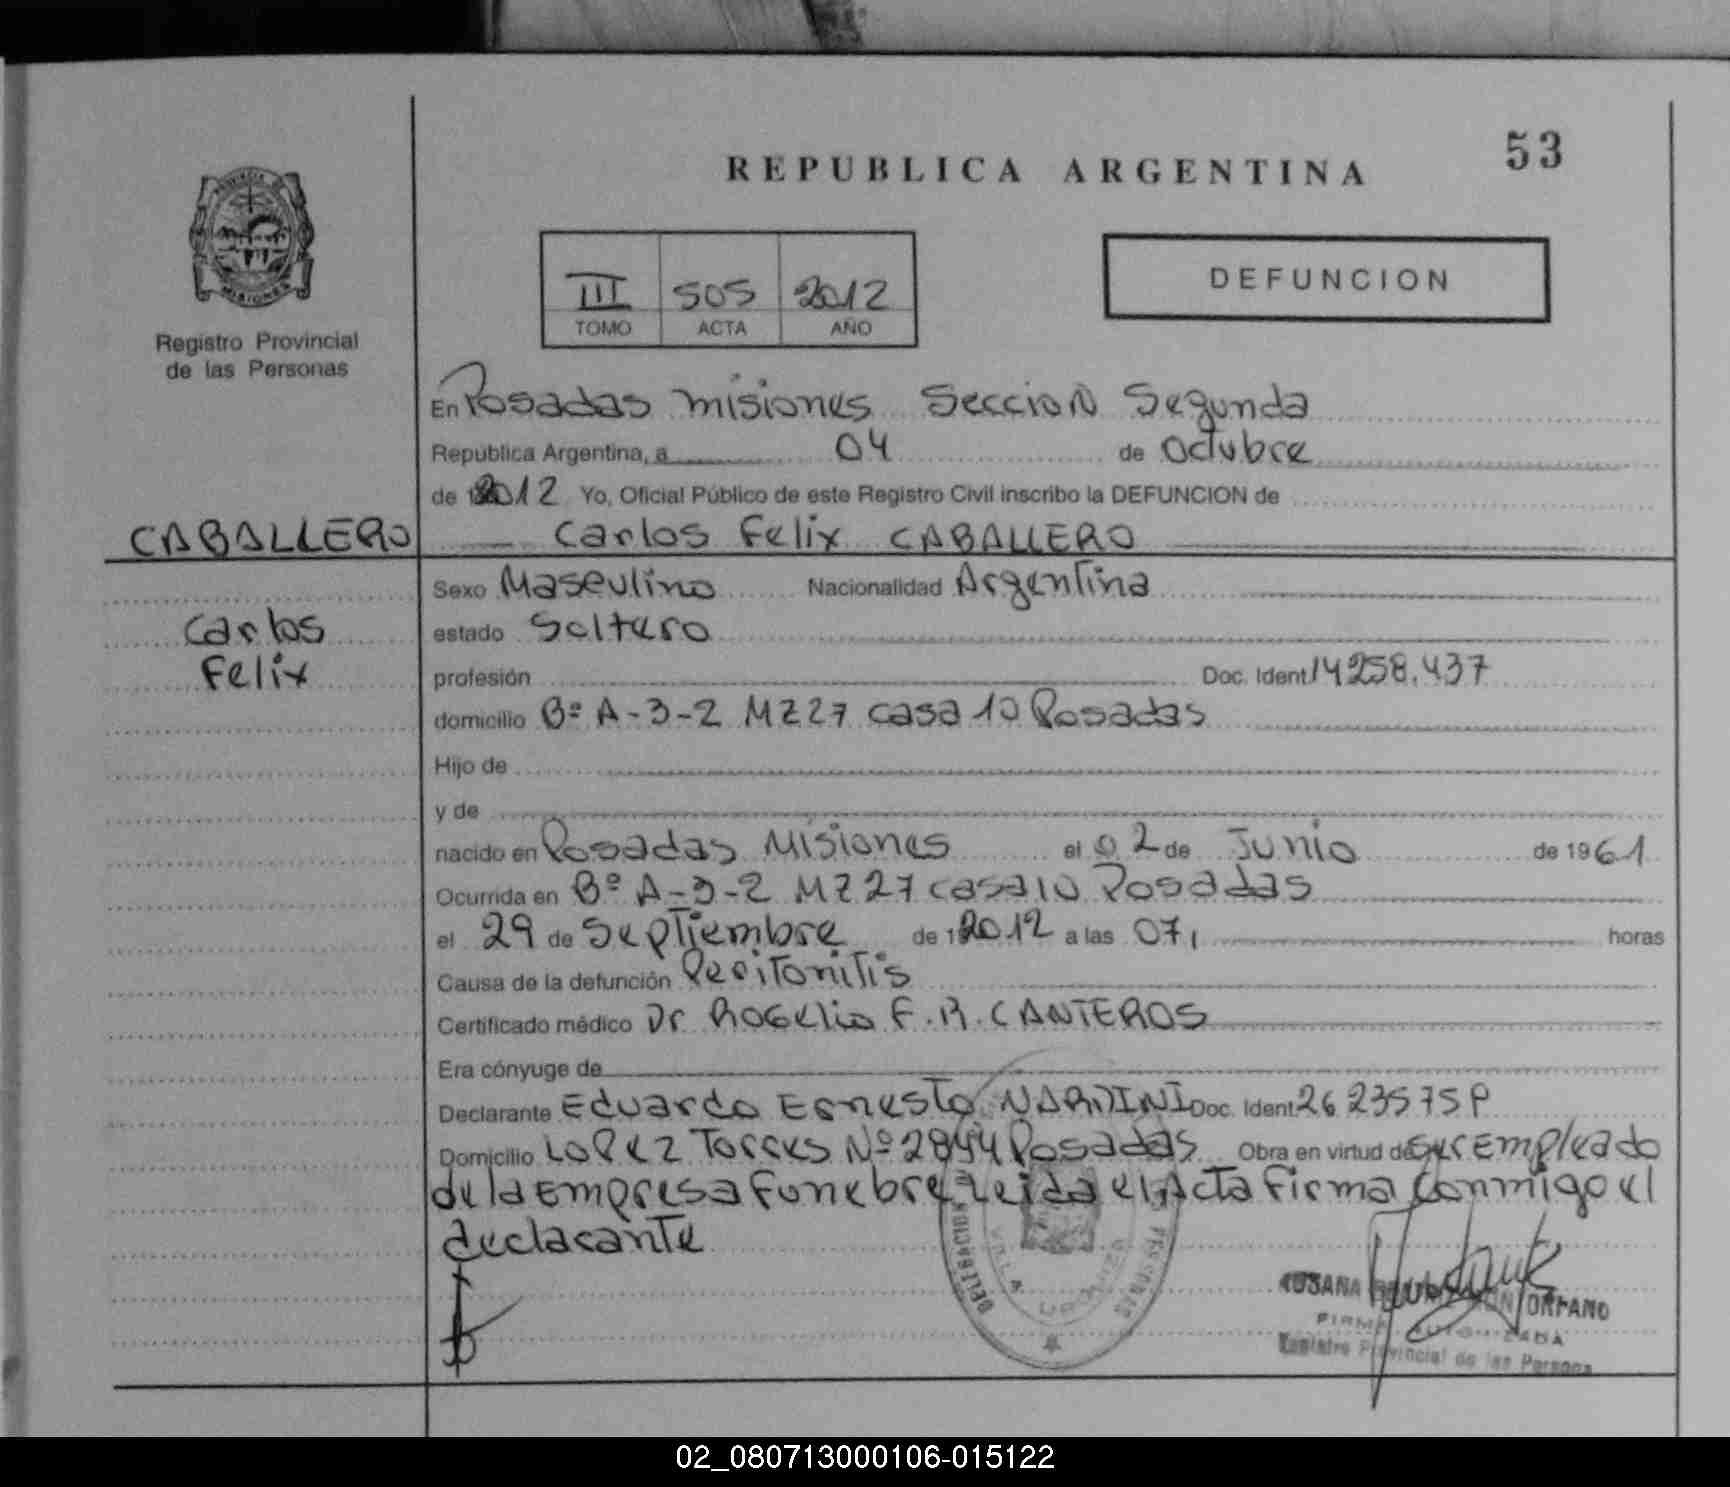 53
REPUBLICA ARGENTINA
PROVINCIA DE
MISIONES
Registro Provincial
de las Personas
III 505 2012
TOMO ACTA AÑO
DEFUNCION
En Posadas Misiones Seccion Segunda
Republica Argentina, a 04 de Octubre
de 2012 Yo, Oficial Público de este Registro Civil inscribo la DEFUNCION de
CABALLERO
Carlos Felix CABALLERO
Carlos
Felix
Sexo Masculino Nacionalidad Argentina
estado Soltero
profesión Doc. Ident. 14258.437
domicilio Bº A-3-2 MZ27 casa 10 Posadas
Hijo de
y de
nacido en Posadas Misiones el 02 de Junio de 1961
Ocurrida en Bº A-3-2 MZ27 casa10 Posadas
el 29 de Septiembre de 2012 a las 07, horas
Causa de la defunción Peritonitis
Certificado médico Dr Rogelio F.R. CANTEROS
Era cónyuge de
Declarante Eduardo Ernesto NARDINI Doc. Ident.
Domicilio LOPEZ Torres Nº 2844 Posadas Obra en virtud de ser Empleado
de la Empresa Funebre Leida el Acta Firma conmigo el
declarante
DELEGACION
VILLA URQUIZA
PERSONAS
FIRMA AUTORIZADA
Registro Provincial de las Persona
02_080713000106-015122